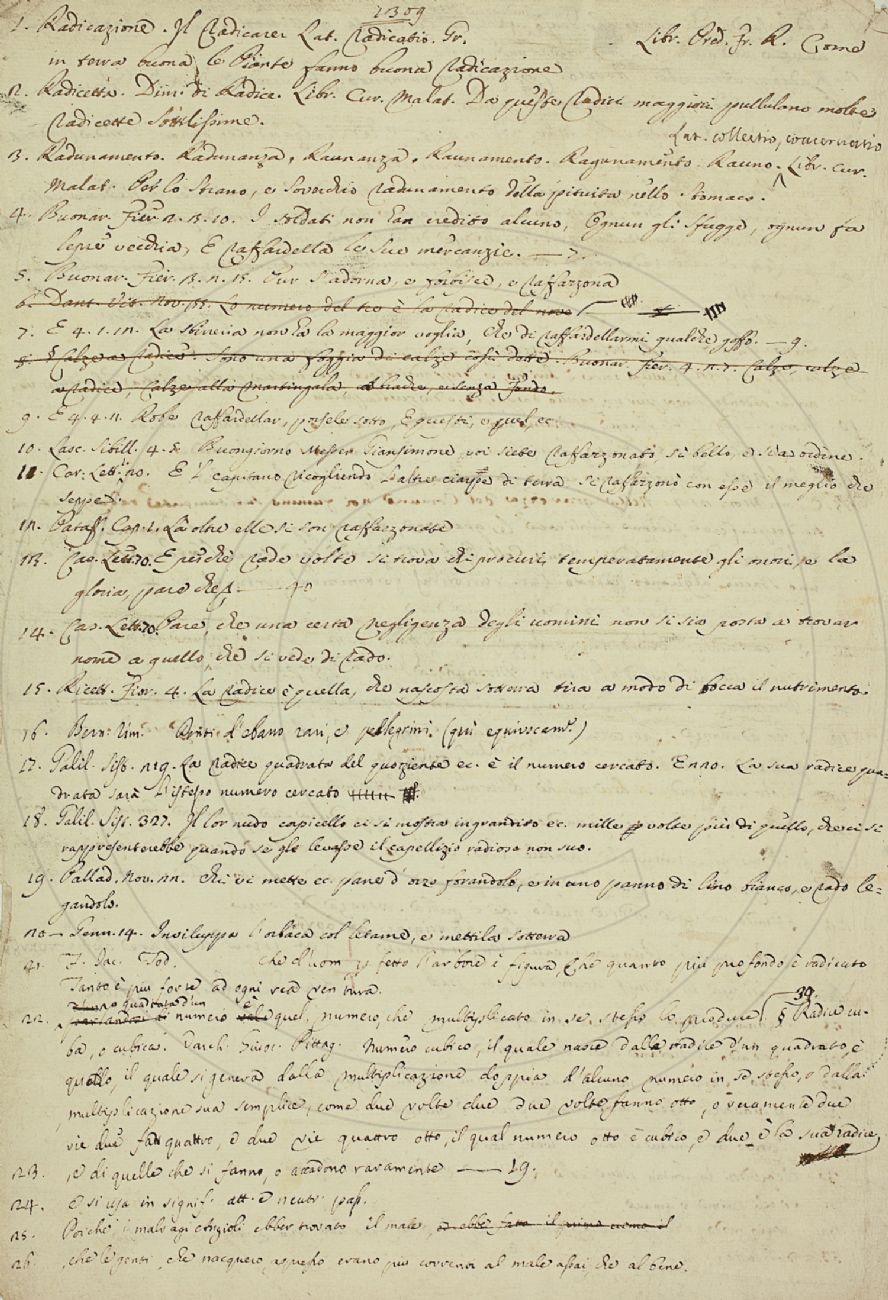 1309
1. Radicazione. Il Radicare. Lat. Radicatio. Gr. Libr. Op. Fr. R. Come
in terra buona le Piante fanno buona radicazione
2. Radicetta. Dim. di Radica. Libr. Cur. Malat. Da queste radici maggiori pullulano molte
radicette sottilissime.
Lat. collectio, coacervatio
3. Radunamento. Radunanza, Raunanza, Raunamento. Ragunamento. Rauno. Libr. Cur.
Malat. Per lo strano, e soverchio radunamento della pituita nello stomaco.
4. Buonar. Fier. 2. 3. 10. I soldati non han credito alcuno, Ognun gli sfugge, ognun fa
lepre vecchia, E raffardella le sue mercanzie. — 7.
5. Buonar. Fier. 3. 2. 15. s'adorna, e forbisce, e raffazzona
6. Dant. Vit. Nov. 35. Lo numero del tre è la radice del nove
7. E 4. 1. 11. La non ha la maggior voglia, Che di raffardellarmi qualche goffo. — 9.
8. § Calze a radice. Sono una foggia di calze così dette. Buonar. Fier. 4. 2. 7. Calze, calze
a radice, Calze alla martingala, e senza fondo.
9. E 4. 4. 2. Robe raffardellar, porsele sotto, E questi, e quel, ec.
10. Lasc. Sibill. 4. 5. Buongiorno Messer Giansimone, voi siete raffazzonato sì bello, e sì a ordine.
11. Car. Lett. E 'l capitano ricogliendo l'altre ciarpe di terra si raffazzonò con esse il meglio che
seppe.
12. Pataff. Cap. 1. Là oltre elle si son raffazzonate
13. Cas. Lett. 70. E perchè rade volte si trova chi procuri temperatamente gli onori, e la
gloria, pare che,
14. Cas. Lett. 70. Pare, che una certa negligenza degli uomini non si sia posta a trovar
nome a quello, che si vede di rado.
15. Ricett. Fior. 4. La radice è quella, che nascosta sotterra tira a modo di bocca il nutrimento.
16. Bern. Rim. Denti d'ebano rari, e pellegrini. (qui equivocam.)
17. Galil. Sist. 219. La radice quadrata del quoziente ec. è il numero cercato. E 220. La sua radice qua-
drata sarà l'istesso numero cercato
18. Galil. Sist. 327. Il lor nudo capicello ci si mostra ingrandito ec. mille volte più di quello, che ci si
rappresenterebbe quando se gli levasse il capellizio radioso non suo.
19. Pallad. Nov. 22. Chi vi mette ec. pane d'orzo forandolo, e in uno panno di lino bianco, e rado le=
gandolo.
20 — Genn. 14. Inviluppa l'orbaca col letame, e mettila sotterra
21. F. Jac. Tod. Che d'uom perfetto l'arbore è figura, Che quanto più profondo è radicato
Tanto è più forte ad ogni ventura.
22. d'un numero è quel, numero, che multiplicato in se stesso lo produce. 39. § Radice cu-
ba, o cubica. Varch. Giuoc. Pittag. Numero cubico, il quale nasce dalla radice d'un quadrato, è
quello, il quale si genera dalla multiplicazione doppia d'alcuno numero in se stesso, o dalla
multiplicazione sua semplice, come due volte due due volte fanno otto, o veramente due
vie due fan quattro, e due vie quattro otto, il qual numero otto è cubico, e due è la sua radice
23. , e di quelle che si fanno, o accadono raramente — 19.
24. e si usa in signif. att. e neutr. pass.
25. Poichè i malvagi ebber trovato il male, ed ebbe fatto il primo
26. , che le genti, che nacquero appresso erano più correnti al male assai, che al bene.